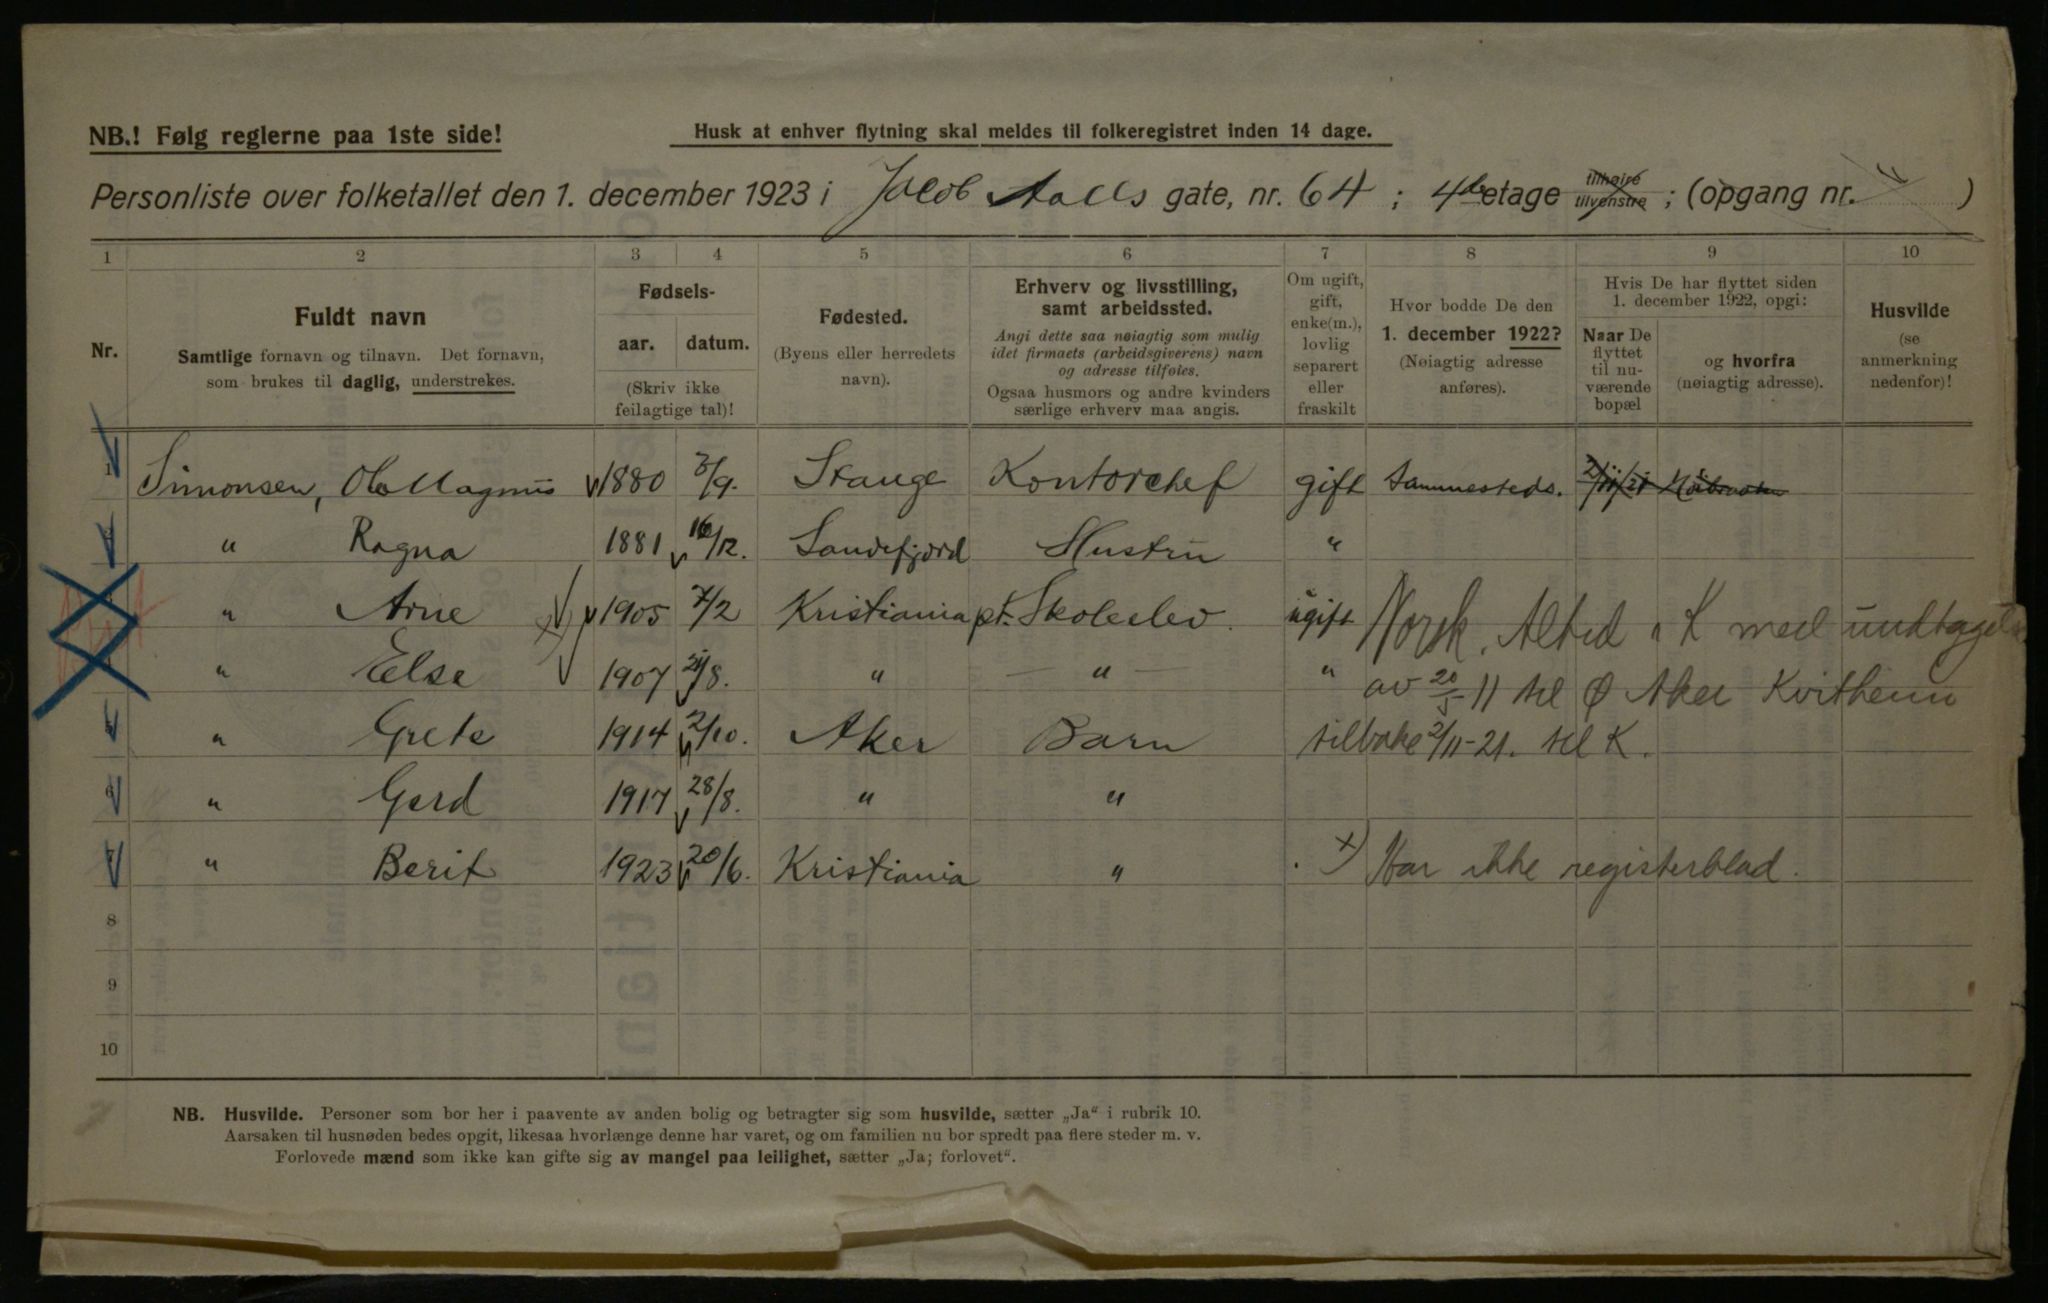 NB.! Følg reglerne paa 1ste side!
Husk at enhver flytning skal meldes til folkeregistret inden 14 dage.
Personliste over folketallet den 1. december 1923 i Jacob Aalls gate, nr. 64 ; 4de etage tilhøire tilvenstre ; (opgang nr. " )
1 2 3 4 5 6 7 8 9 10
Nr.
Fuldt navn
Samtlige fornavn og tilnavn. Det fornavn,
som brukes til daglig, understrekes.
Fødsels-
aar. datum.
(Skriv ikke
feilagtige tal)!
Fødested.
(Byens eller herredets
navn).
Erhverv og livsstilling,
samt arbeidssted.
Angi dette saa nøiagtig som mulig
idet firmaets (arbeidsgiverens) navn
og adresse tilføies.
Ogsaa husmors og andre kvinders
særlige erhverv maa angis.
Om ugift,
gift,
enke(m.),
lovlig
separert
eller
fraskilt
Hvor bodde De den
1. december 1922?
(Nøiagtig adresse
anføres).
Hvis De har flyttet siden
1. december 1922, opgi:
Naar De
flyttet
til nu-
værende
bopæl
og hvorfra
(nøiagtig adresse).
Husvilde
(se
anmerkning
nedenfor)!
1 Simonsen, Ole Magnus 1880 3/9. Stange Kontorchef gift Sammesteds. 2/11/21
2 " Ragna 1881 16/12. Sandefjord Hustru "
" Arne x) 1905 7/2 Kristiania pt. Skoleelev. ugift Norsk. Altid i K med undtagelse
" Else 1907 /8. " — " — " av 20/5 11 til Ø Aker Kvitheim
5 " Grete 1914 2/10. Aker Barn tilbake 2/11-21. til K.
6 " Gerd 1917 28/8. " "
7 " Berit 1923 20/6. Kristiania " x) Har ikke registerblad.
8
9
10
NB. Husvilde. Personer som bor her i paavente av anden bolig og betragter sig som husvilde, sætter „Ja“ i rubrik 10.
Aarsaken til husnøden bedes opgit, likesaa hvorlænge denne har varet, og om familien nu bor spredt paa flere steder m. v.
Forlovede mænd som ikke kan gifte sig av mangel paa leilighet, sætter „Ja; forlovet“.